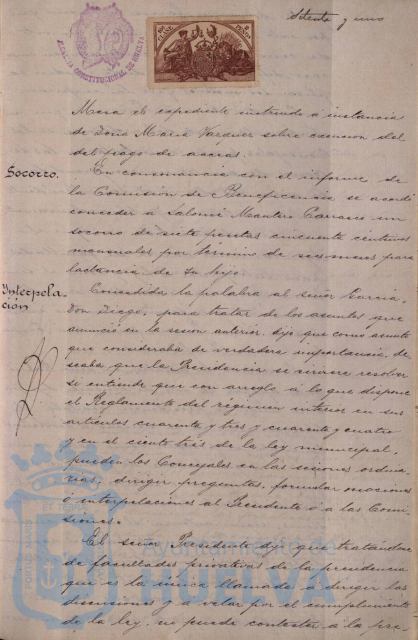 Setenta y uno
ALCALDIA CONSTITUCIONAL DE HUELVA
Mesa el expediente instruido a instancia
de Doña Maria Vazquez sobre exencion del
del pago de aceras.
Socorro.
En consonancia con el informe de
la Comision de Beneficencia se acordó
conceder á Salomé Mantero Carrasco un
socorro de siete pesetas cincuenta centimos
mensuales por término de seis meses para
lactancia de su hijo.
Interpela-
ción
Concedida la palabra al señor Garcia,
Don Diego, para tratar de los asuntos que
anunció en la sesion anterior, dijo que como asunto
que consideraba de verdadera importancia, de
seaba que la Presidencia se sirviera resolver
si entiende que con arreglo á lo que dispone
el Reglamento del régimen interior en sus
articulos cuarenta y tres y cuarenta y cuatro
y en el ciento tres de la ley municipal,
pueden los Concejales en las sesiones ordina
rias, dirigir preguntas, formular mociones
ó interpelaciones al Presidente ó a las Comi
siones.
El señor Presidente dijo que tratándose
de facultades privativas de la presidencia
que es la única llamada á dirigir las
discusiones y a velar por el cumplimiento
de la ley, no puede contestar á la pre
Ayuntamiento de
HUELVA